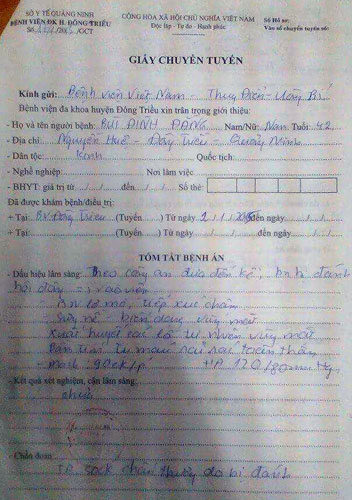 SỞ Y TẾ QUẢNG NINH
BỆNH VIỆN ĐK H. ĐÔNG TRIỀU
Số: /GCT
CỘNG HÒA XÃ HỘI CHỦ NGHĨA VIỆT NAM
Độc lập - Tự do - Hạnh phúc
Số Hồ sơ:
Vào sổ chuyển tuyến số:
GIẤY CHUYỂN TUYẾN
Kính gửi: Bệnh viện Việt Nam - Thụy Điển - Uông Bí
Bệnh viện đa khoa huyện Đông Triều xin trân trọng giới thiệu:
- Họ và tên người bệnh: BÙI ĐÌNH ĐẶNG Nam/Nữ: Nam Tuổi: 42
- Địa chỉ: Nguyễn Huệ - Đông Triều - Quảng Ninh
- Dân tộc: Kinh Quốc tịch:
- Nghề nghiệp: Nơi làm việc
- BHYT: giá trị từ / / đến / / Số thẻ:
Đã được khám bệnh/điều trị:
+ Tại: BV Đông Triều (Tuyến ) Từ ngày 2/1/ đến ngày / /
+ Tại: (Tuyến ) Từ ngày / / đến ngày / /
TÓM TẮT BỆNH ÁN
- Dấu hiệu lâm sàng: Theo công an đưa đến kể, anh đánh
=> vào viện
lơ mơ, tiếp xúc chậm
- Sưng nề - biến dạng vùng mặt
Xuất huyết vùng mắt
Bầm tím tụ máu rải rác toàn thân
- Mạch: 90ck/p HA 120/80 mmHg
- Kết quả xét nghiệm, cận lâm sàng:
chưa
- Chẩn đoán:
TD sock chấn thương do bị đánh